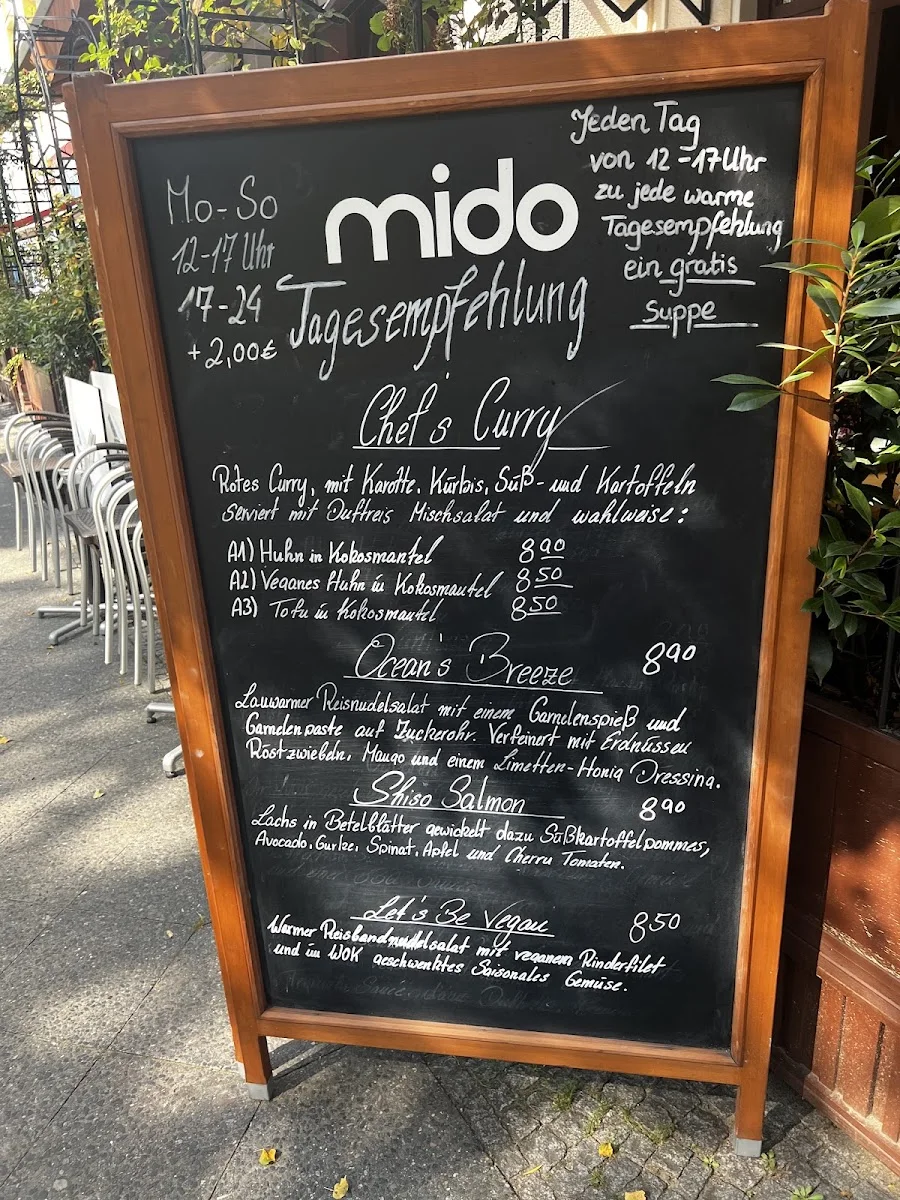 Mo-So
12-17 Uhr
17-24
+2,00€
mido
Tagesempfehlung
Jeden Tag
von 12-17 Uhr
zu jede warme
Tagesempfehlung
ein gratis
Suppe
Chef's Curry
Rotes Curry, mit Karotte, Kürbis, Süß- und Kartoffeln
Serviert mit Duftreis Mischsalat und wahlweise:
A1) Huhn in Kokosmantel 8 90
A2) Veganes Huhn in Kokosmantel 8 50
A3) Tofu in Kokosmantel 8 50
Ocean's Breeze 8 90
Lauwarmer Reisnudelsalat mit einem Garnelenspieß und
Garnelenpaste auf Zuckerohr. Verfeinert mit Erdnüssen
Röstzwiebeln, Mango und einem Limetten-Honig Dressing.
Shiso Salmon 8 90
Lachs in Betelblätter gewickelt dazu Süßkartoffelpommes,
Avocado, Gurke, Spinat, Apfel und Cherry Tomaten.
Let's Be Vegan 8 50
Warmer Reisbandnudelsalat mit veganem Rinderfilet
und im WOK geschwenktes Saisonales Gemüse.